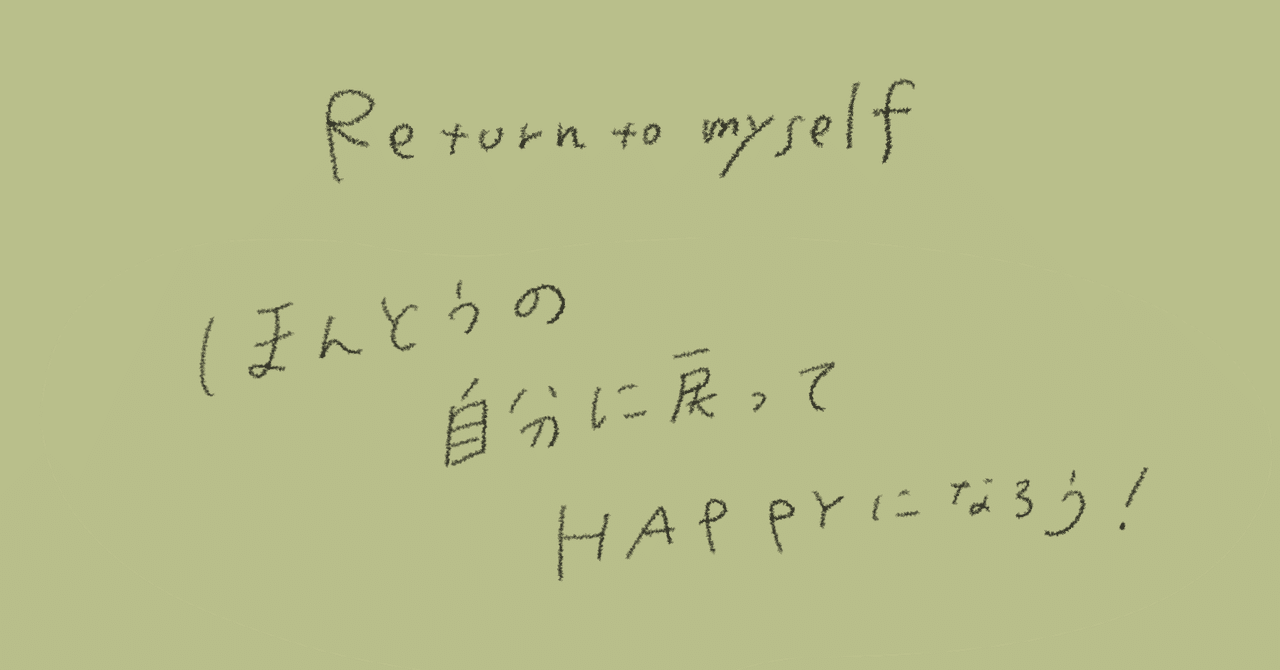 Return to myself
ほんとうの
自分に戻って
HAPPYになろう!